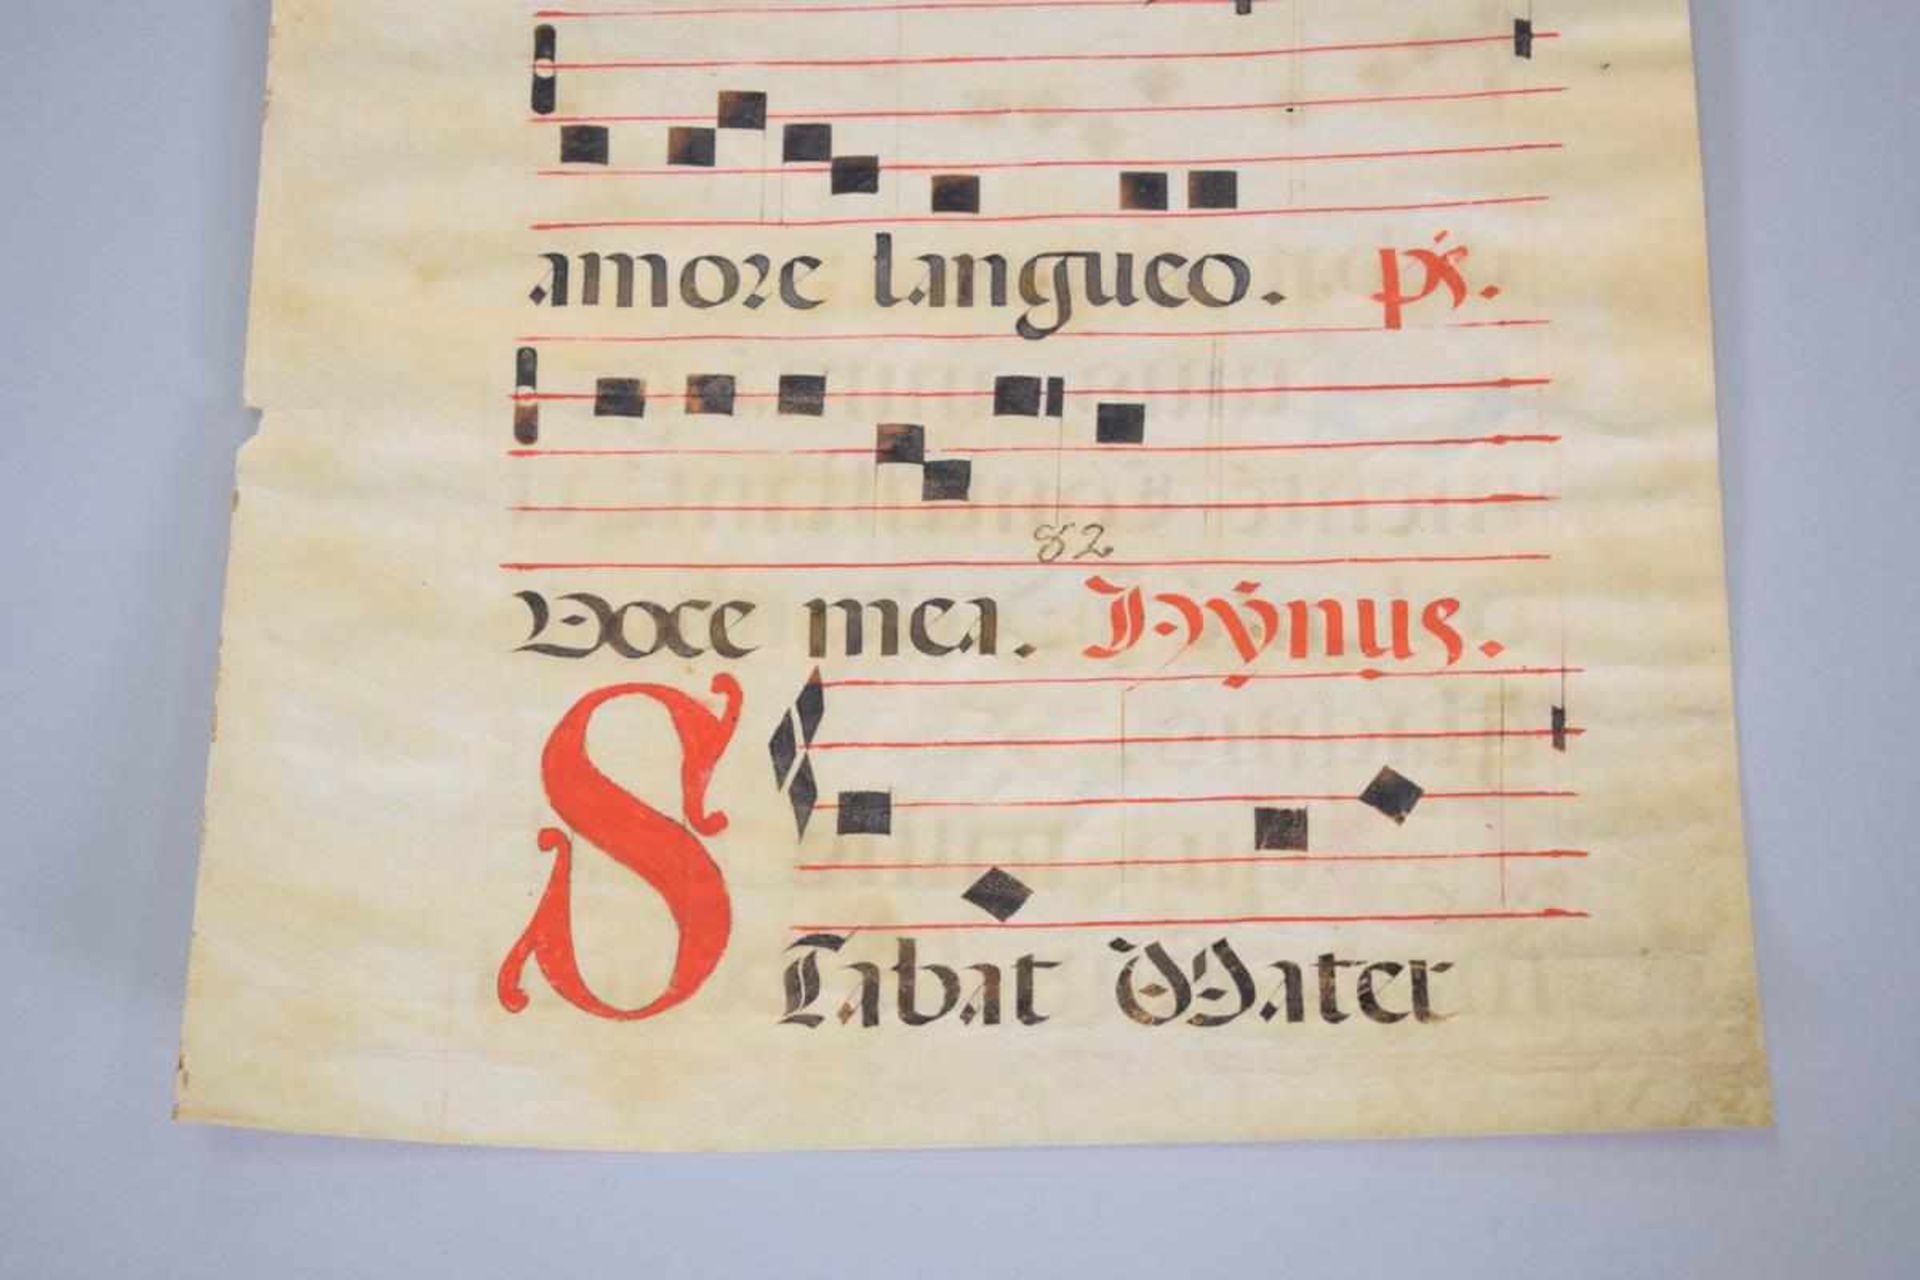 amore langueo. ps.
82
Voce mea. Hẏnus.
Stabat Mater